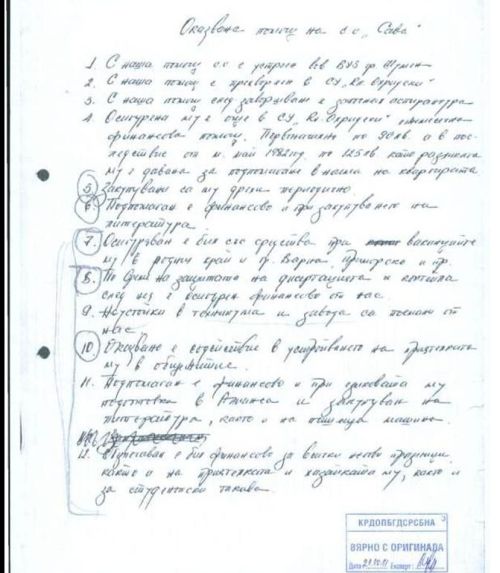 Оказвана помощ на с.с. "Сава"
1. С наша помощ с.с е устроен във ВУЗ гр. Шумен
2. С наша помощ е прехвърлен в СУ "Кл. Охридски"
3. С наша помощ след завършване е започнал аспирантура
4. Осигурена му е още в СУ "Кл. Охридски" ежемесечна
финансова помощ. Първоначално по 90 лв. а в пос-
ледствие от м. май 1982 год. по 125 лв като разликата
му е давана за подпомагане в наема на квартирата
5. Закупувани са му дрехи периодично.
6. Подпомаган е финансово и при закупуването на
литература.
7. Осигуряван е бил със средства при ваканциите
му в родния край и гр. Варна, Приморско и др.
8. По време на защитата на дисертацията и коктейла
след нея е осигурен финансово от нас.
9. Неустойки в техникума и завода са поети от
нас
10. Оказвано е съдействие в устройването на приятелката
му в общежитие.
11. Подпомаган е финансово и при езиковата му
подготовка в Алианса и закупуван на
литература, както и на пишеща машина.
12. е бил финансово за всички негови празници
както и на приятелката и хазайката му, както и
за студентски такива.
КРДОПБГДСРСБНА
ВЯРНО С ОРИГИНАЛА
Дата Експерт: